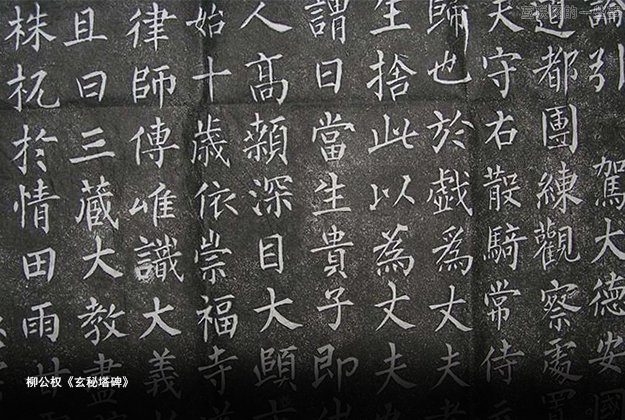 論引 駕大德安國
道都團練觀察處
大守右散騎常侍
歸也於戲為丈夫
生捨此以為丈夫
謂曰當生貴子即
人高顙深目大頤
始十歲依崇福寺
律師傳唯識大義
且曰三藏大教盡
株杌於情田雨
柳公权《玄秘塔碑》